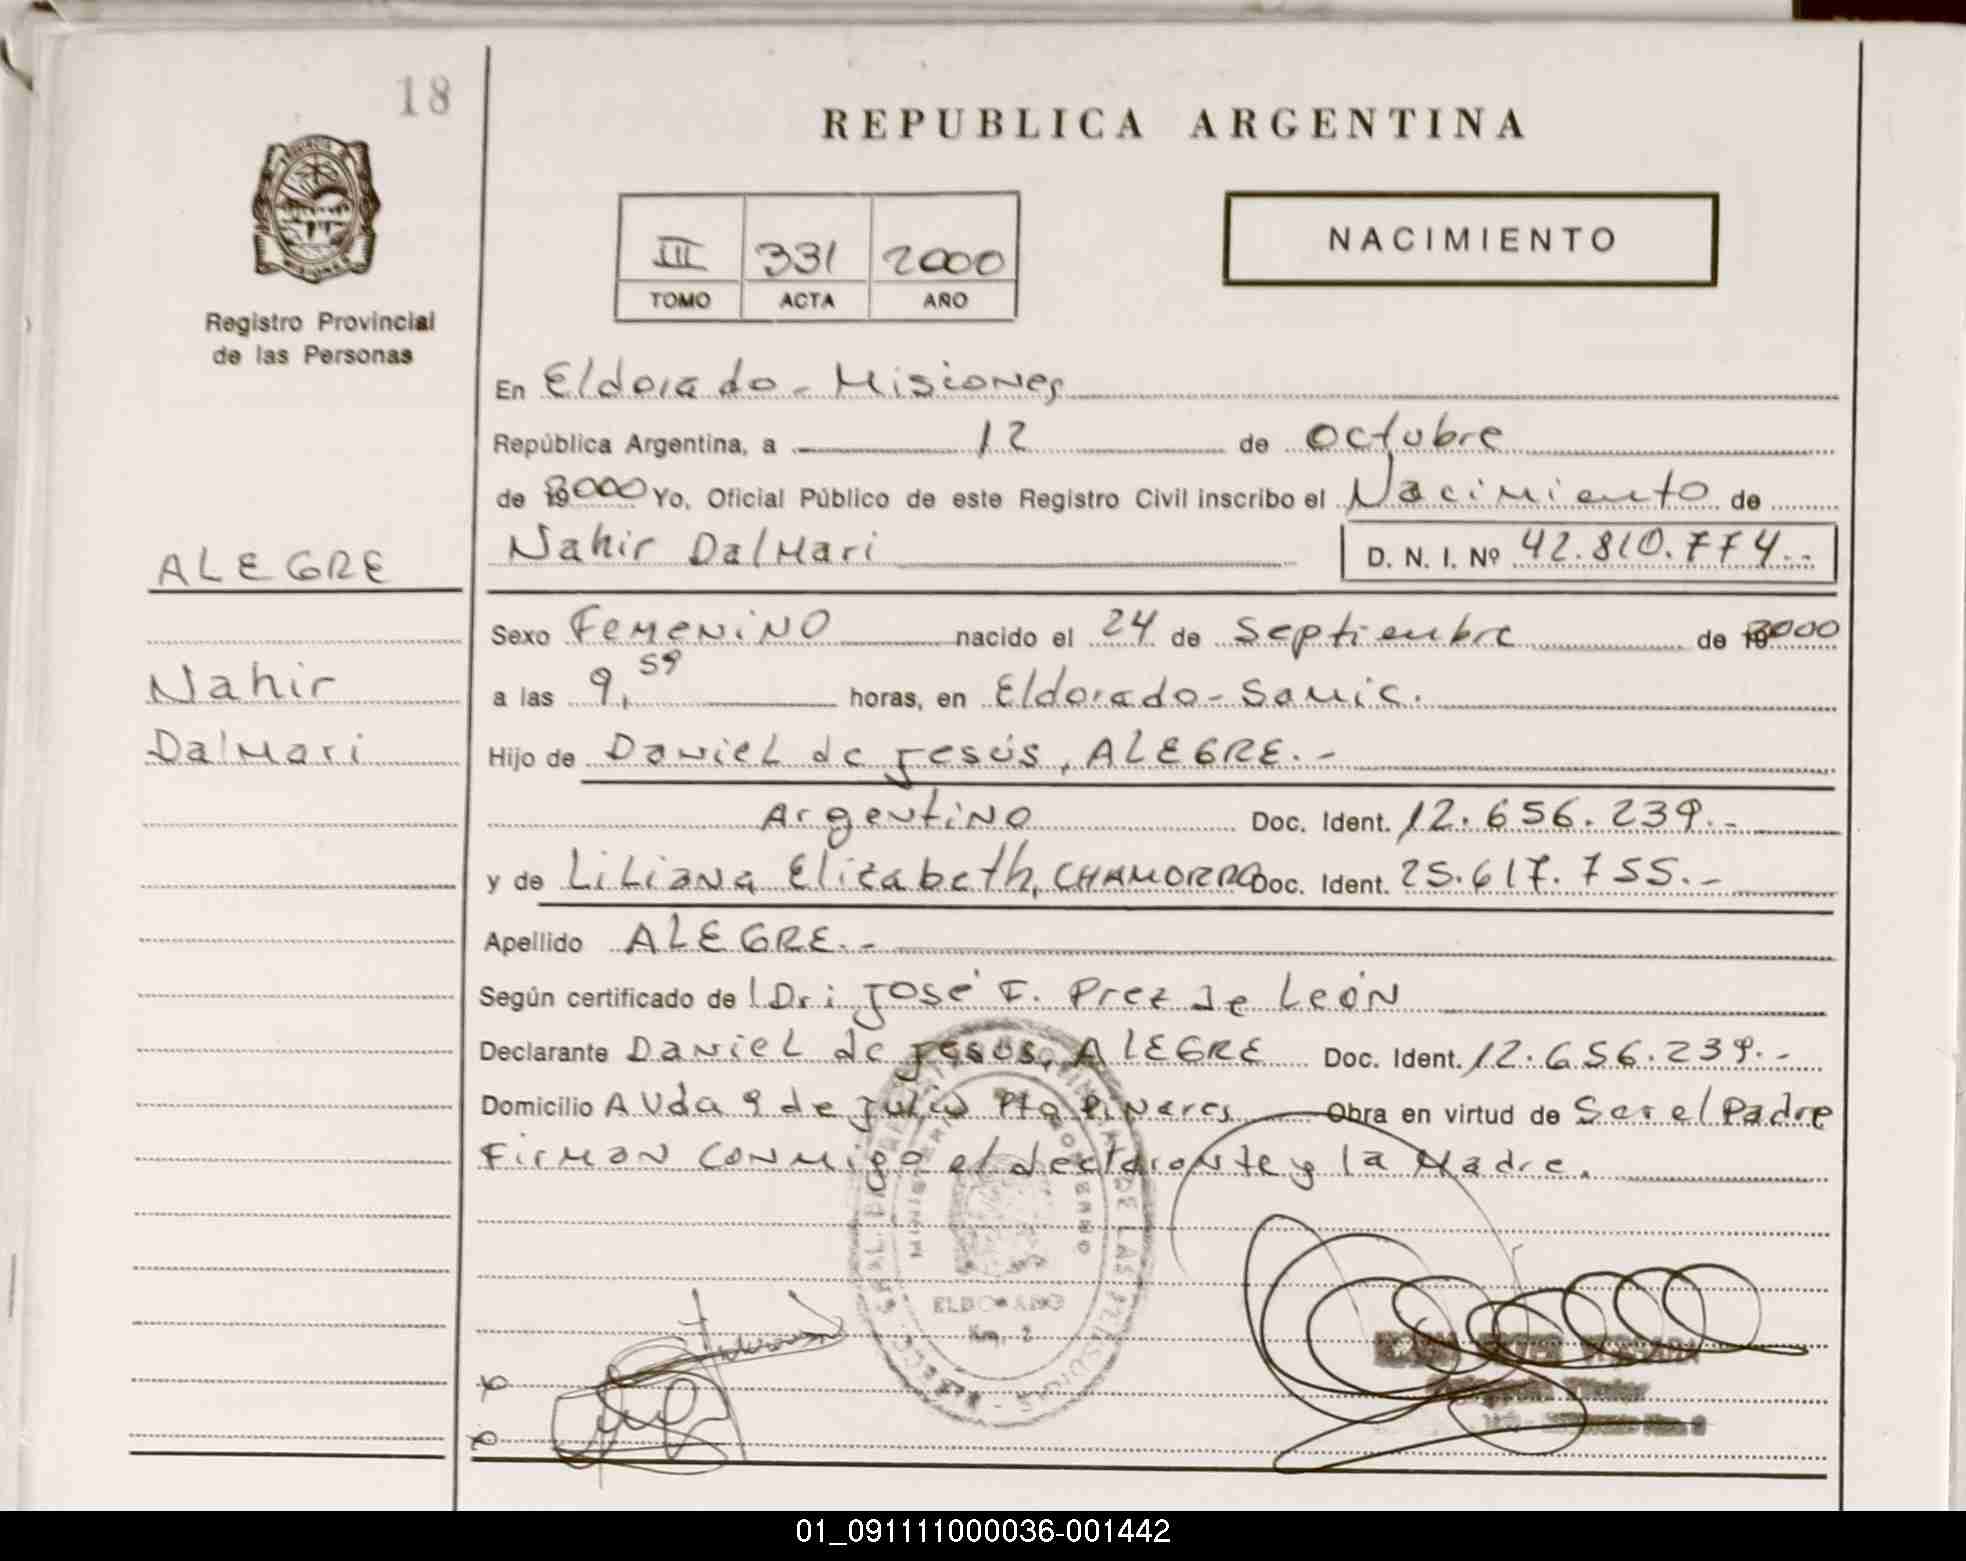 18
REPUBLICA ARGENTINA
III 331 2000
TOMO ACTA AÑO
NACIMIENTO
Registro Provincial
de las Personas
En Eldorado - Misiones
República Argentina, a 12 de octubre
de 2000 Yo, Oficial Público de este Registro Civil inscribo el Nacimiento de
Nahir DalMari D. N. I. Nº 42.810.774..
ALEGRE
Nahir
DalMari
Sexo Femenino nacido el 24 de Septiembre de 2000
a las 9,59 horas, en Eldorado - Samic.
Hijo de Daniel de Jesús, ALEGRE.-
Argentino Doc. Ident. 12.656.239.-
y de Liliana Elizabeth, CHAMORRO Doc. Ident. 25.617.755.-
Apellido ALEGRE.-
Según certificado de Dr: José F. Prez de León
Declarante Daniel de Jesús, ALEGRE Doc. Ident. 12.656.239.-
Domicilio AVda 9 de Julio Pto Pinares Obra en virtud de Ser el Padre
Firman conmigo el declarante y la Madre.
MINISTERIO GOBIERNO
DE LAS PERSONAS
ELDORADO
Km. 2
01_091111000036-001442